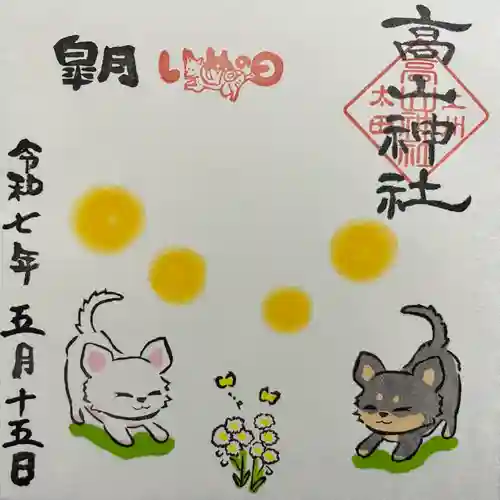 高山神社
上州
太田
高山神社
皐月
いぬの日
令和七年五月十五日